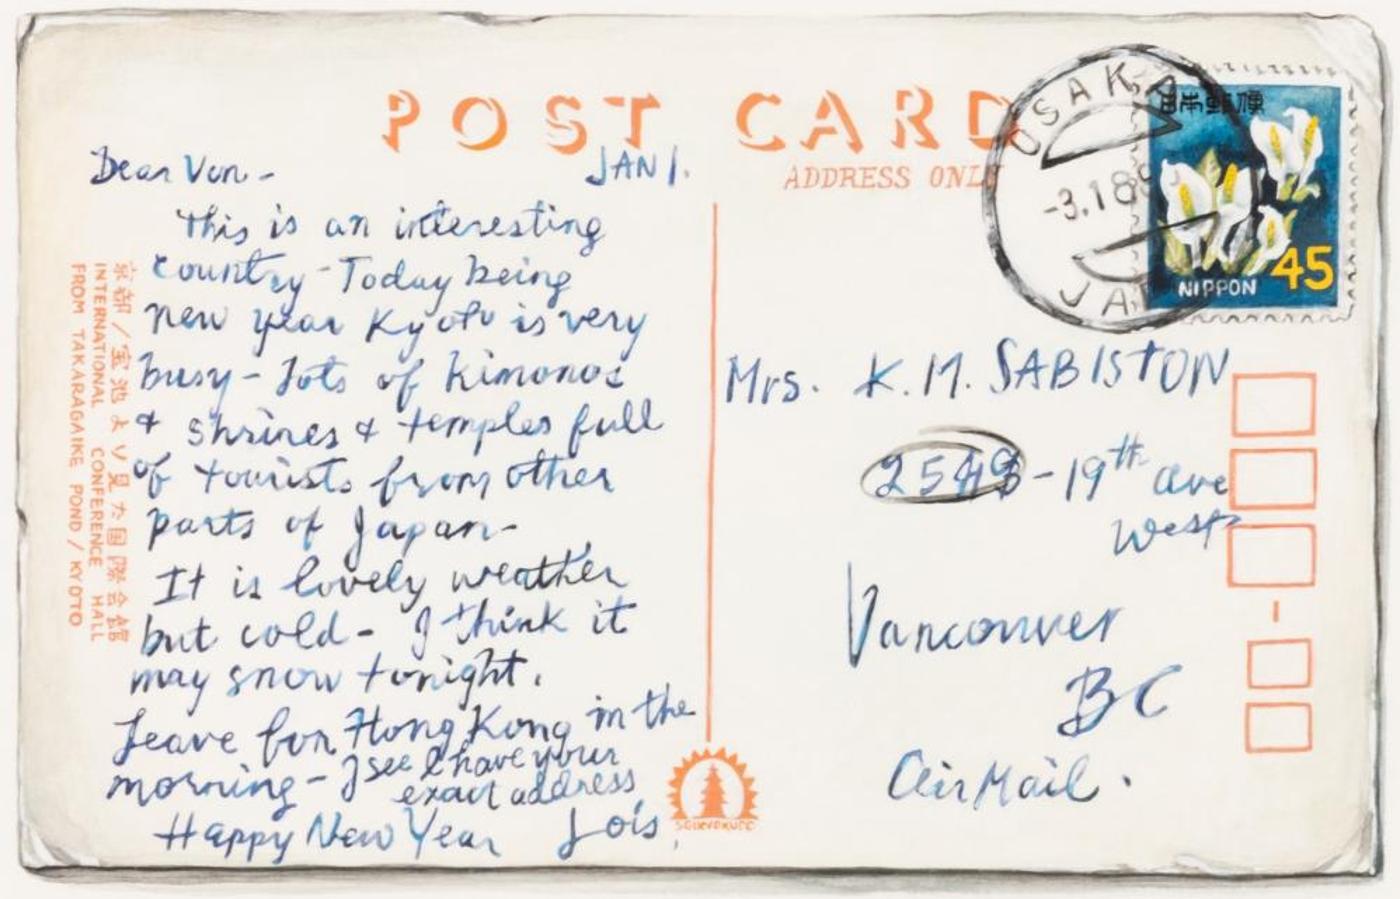 POST CARD
ADDRESS ONLY
OSAKA
-3.1.8
JA
日本郵便
45
NIPPON
Dear Von - JAN 1.
This is an interesting
country - Today being
new year Kyoto is very
busy - Lots of kimonos
& shrines & temples full
of tourists from other
parts of Japan -
It is lovely weather
but cold - I think it
may snow tonight.
Leave for Hong Kong in the
morning - I see I have your
exact address
Happy New Year Lois.
京都/宝池より見た国際会館
INTERNATIONAL CONFERENCE HALL
FROM TAKARAGAIKE POND / KYOTO
Mrs. K.M. SABISTON
- 19th ave
West
Vancouver
BC
Air Mail.